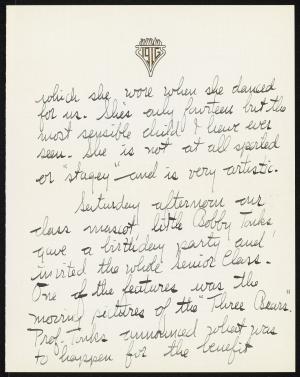 1916
which she wore when she danced
for us. She's only fourteen but the
most sensible child I have ever
seen. She is not at all spoiled
or "stagey" and is very artistic.
Saturday afternoon our
class mascot little Bobby Tinks
gave a birthday party and
invited the whole Senior Class.
One of the features was the
moving pictures of the "Three Bears".
Prof. Tinks announced what was
to happen for the benefit